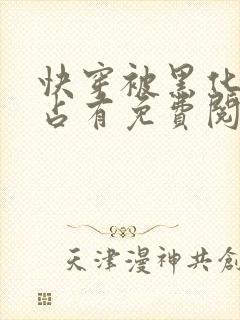 快穿被黑化
占有免费阅
天津漫神共創